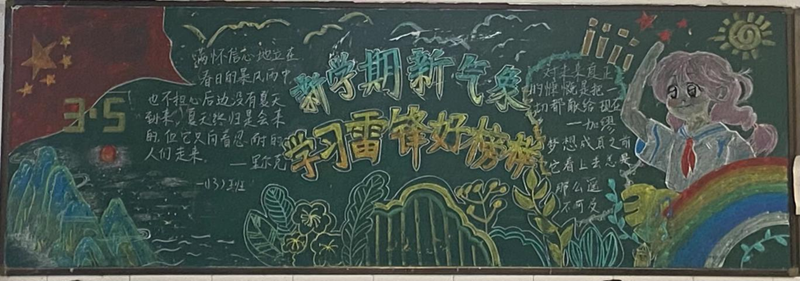 满怀信心地立在
春日的暴风雨中
也不担心后边没有夏天
到来,夏天终归是会来
的,但它只向着忍耐的
人们走来。
——里尔克
3·5
新学期新气象
学习雷锋好榜样
对未来真正
的慷慨是把一
切都献给现在
——加缪
梦想成真之前
它看上去总是
那么遥
不可及